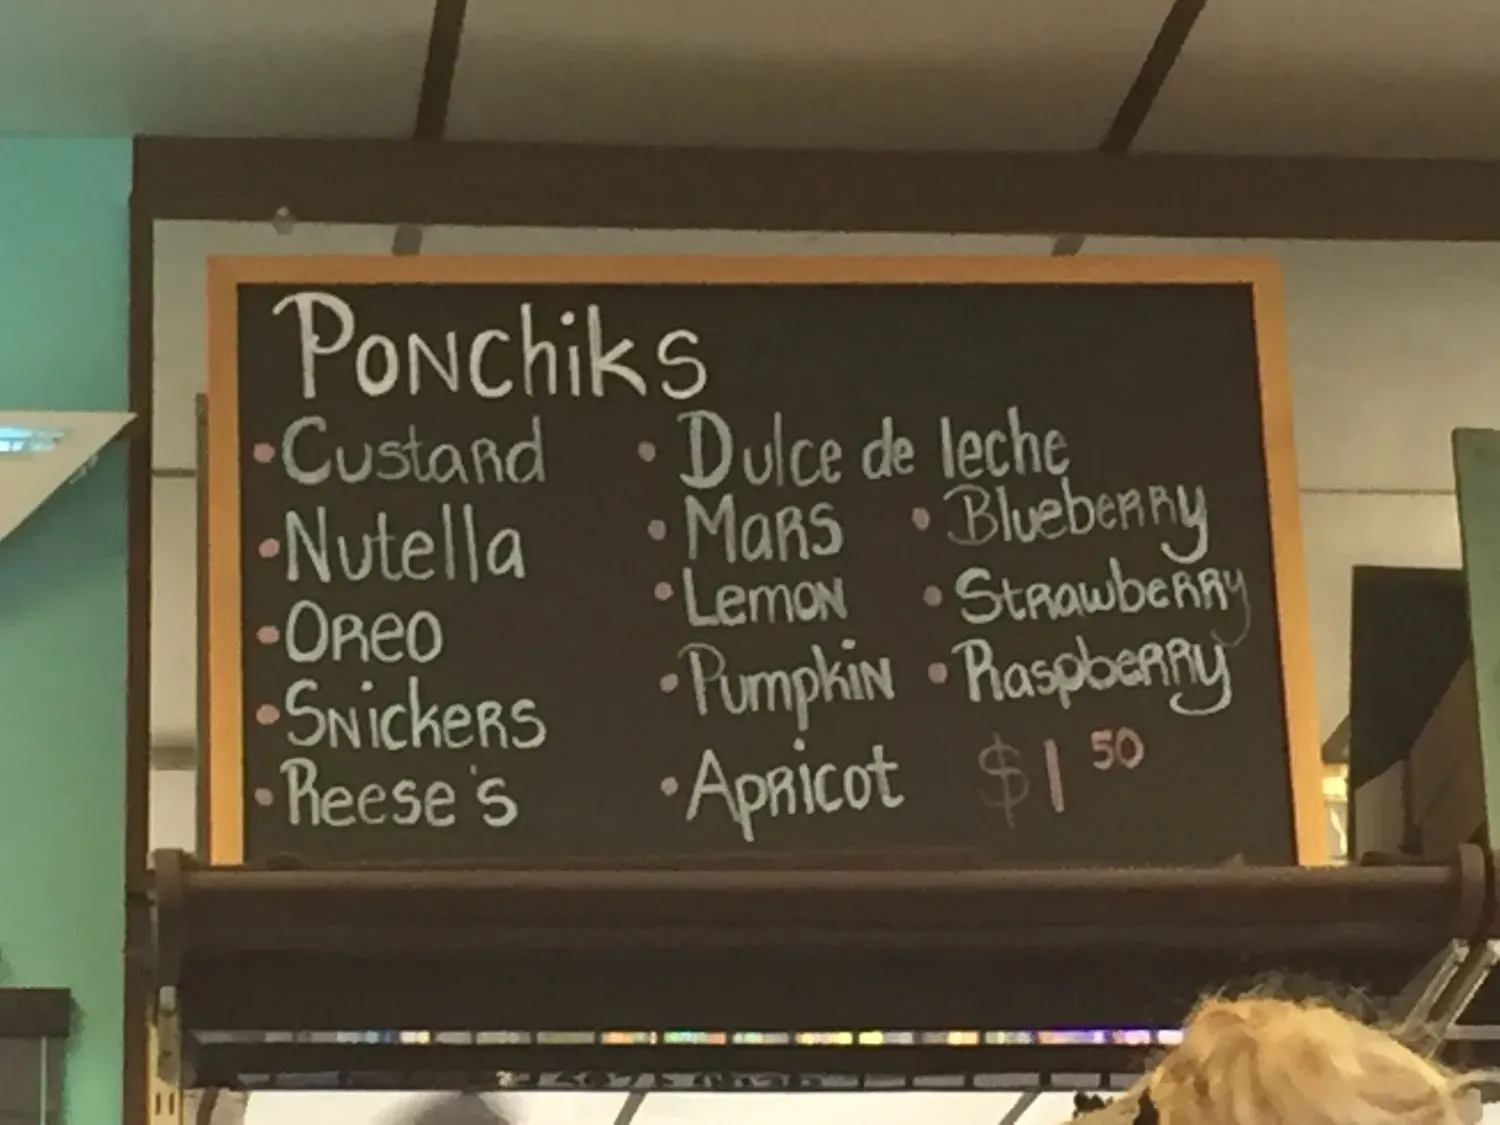 Ponchiks
• Custard
• Nutella
• Oreo
• Snickers
• Reese's
• Dulce de leche
• Mars
• Lemon
• Pumpkin
• Apricot
• Blueberry
• Strawberry
• Raspberry
$1 50